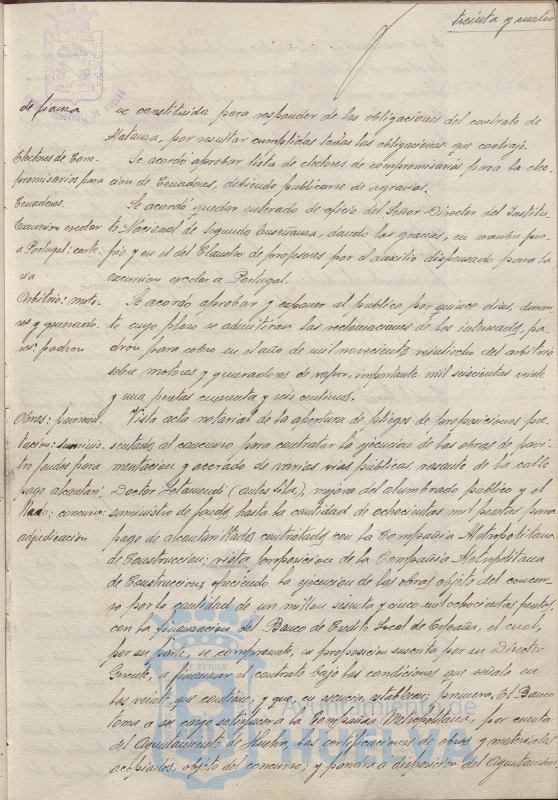 treinta y cuatro
de fianza
va constituida para responder de las obligaciones del contrato de
Matanza, por resultar cumplidas todas las obligaciones que contrajo.
Electores de Com-
promisarios para
Senadores.
Se acordó aprobar lista de electores de compromisarios para la elec-
ción de Senadores, debiendo publicarse de agravios.
Excursión escolar
a Portugal: carta
Se acordó quedar enterado de oficio del Señor Director del Institu-
to Nacional de Segunda Enseñanza, dando las gracias, en nombre pro-
pio y en el del Claustro de profesores por el auxilio dispensado para la
excursión escolar a Portugal.
Arbitrio: moto-
res y generado-
res: padron
Se acordó aprobar y exponer al publico por quince dias, duran-
te cuyo plazo se admitirán las reclamaciones de los interesados, pa-
drón para cobro en el año de mil novecientos veintiocho del arbitrio
sobre motores y generadores de vapor, importante mil seiscientas veinte
y una pesetas cuarenta y seis centimos.
Obras: pavimen-
tacion: suminis-
tro fondos para
pago alcantari-
llado: concurso:
adjudicación
Vista acta notarial de la apertura de pliegos de proposiciones pre-
sentados al concurso para contratar la ejecución de las obras de pavi-
mentación y acerado de varias vias públicas, rasante de la calle
Doctor Letamendi (antes Silos), mejora del alumbrado público y el
suministro de fondos hasta la cantidad de ochocientas mil pesetas para
pago de alcantarillados contratados con la Compañia Metropolitana
de Construccion; vista proposicion de la Compañia Metropolitana
de Construccion, ofreciendo la ejecución de las obras objeto del concur-
so por la cantidad de un millon sesenta y cinco mil ochocientas pesetas,
con la financiacion del Banco de Credito Local de España, el cual,
por su parte, se compromete, en proposicion suscrita por su Director
Gerente, a financiar el contrato bajo las condiciones que señala en
las veinte que contiene, y que, en esencia, establecen: primera, El Banco
toma a su cargo satisfacer a la Compañia Metropolitana, por cuenta
del Ayuntamiento de Huelva, las certificaciones de obras y materiales
acopiados, objeto del concurso; y pondrá a disposición del Ayuntamien-
Ayuntamiento de
HUELVA